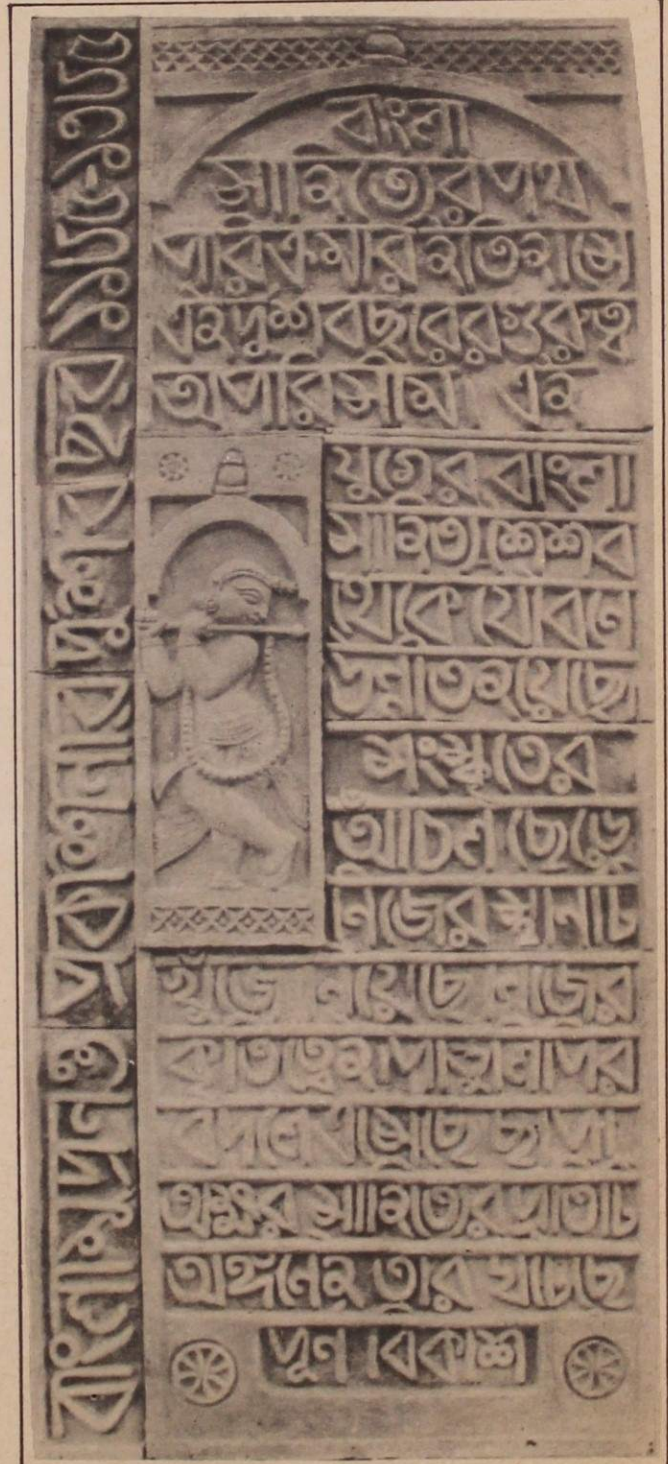 বাংলা মুদ্রন ও প্রকাশনার দুশ বছর ১৭৭৮-১৯৭৮
বাংলা
সাহিত্যের পথ
পরিক্রমার ইতিহাসে
এই দুশ বছরের গুরুত্ব
অপরিসীম। এই
যুগের বাংলা
সাহিত্য শৈশব
থেকে যৌবনে
উন্নীত হয়েছে
সংস্কৃতের
আঁচল ছেড়ে
নিজের স্থানটি
খুঁজে নিয়েছে নিজের
কৃতিত্বেই পান্ডুলিপির
বদলে এসেছে ছাপা
অক্ষর সাহিত্যের প্রতিটি
অঙ্গনেই তার ঘটেছে
পূর্ণ বিকাশ